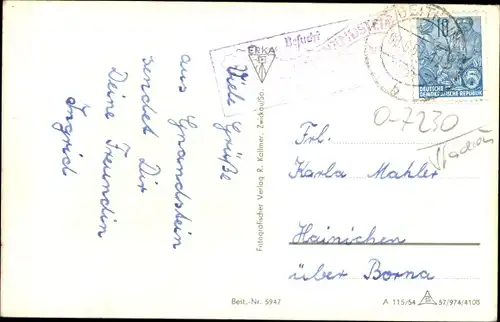 Viele Grüße
aus Gnandstein
sendet Dir
Deine Freundin
Ingrid
ERKA
Fotografischer Verlag R. Kallmer, Zwickau/Sa.
Besucht
10
DEUTSCHE
DEMOKRATISCHE REPUBLIK
5
O-7230
Frl.
Karla Mahler
Hainichen
über Borna
Beit.-Nr. 5947
A 115/54
57/974/4108